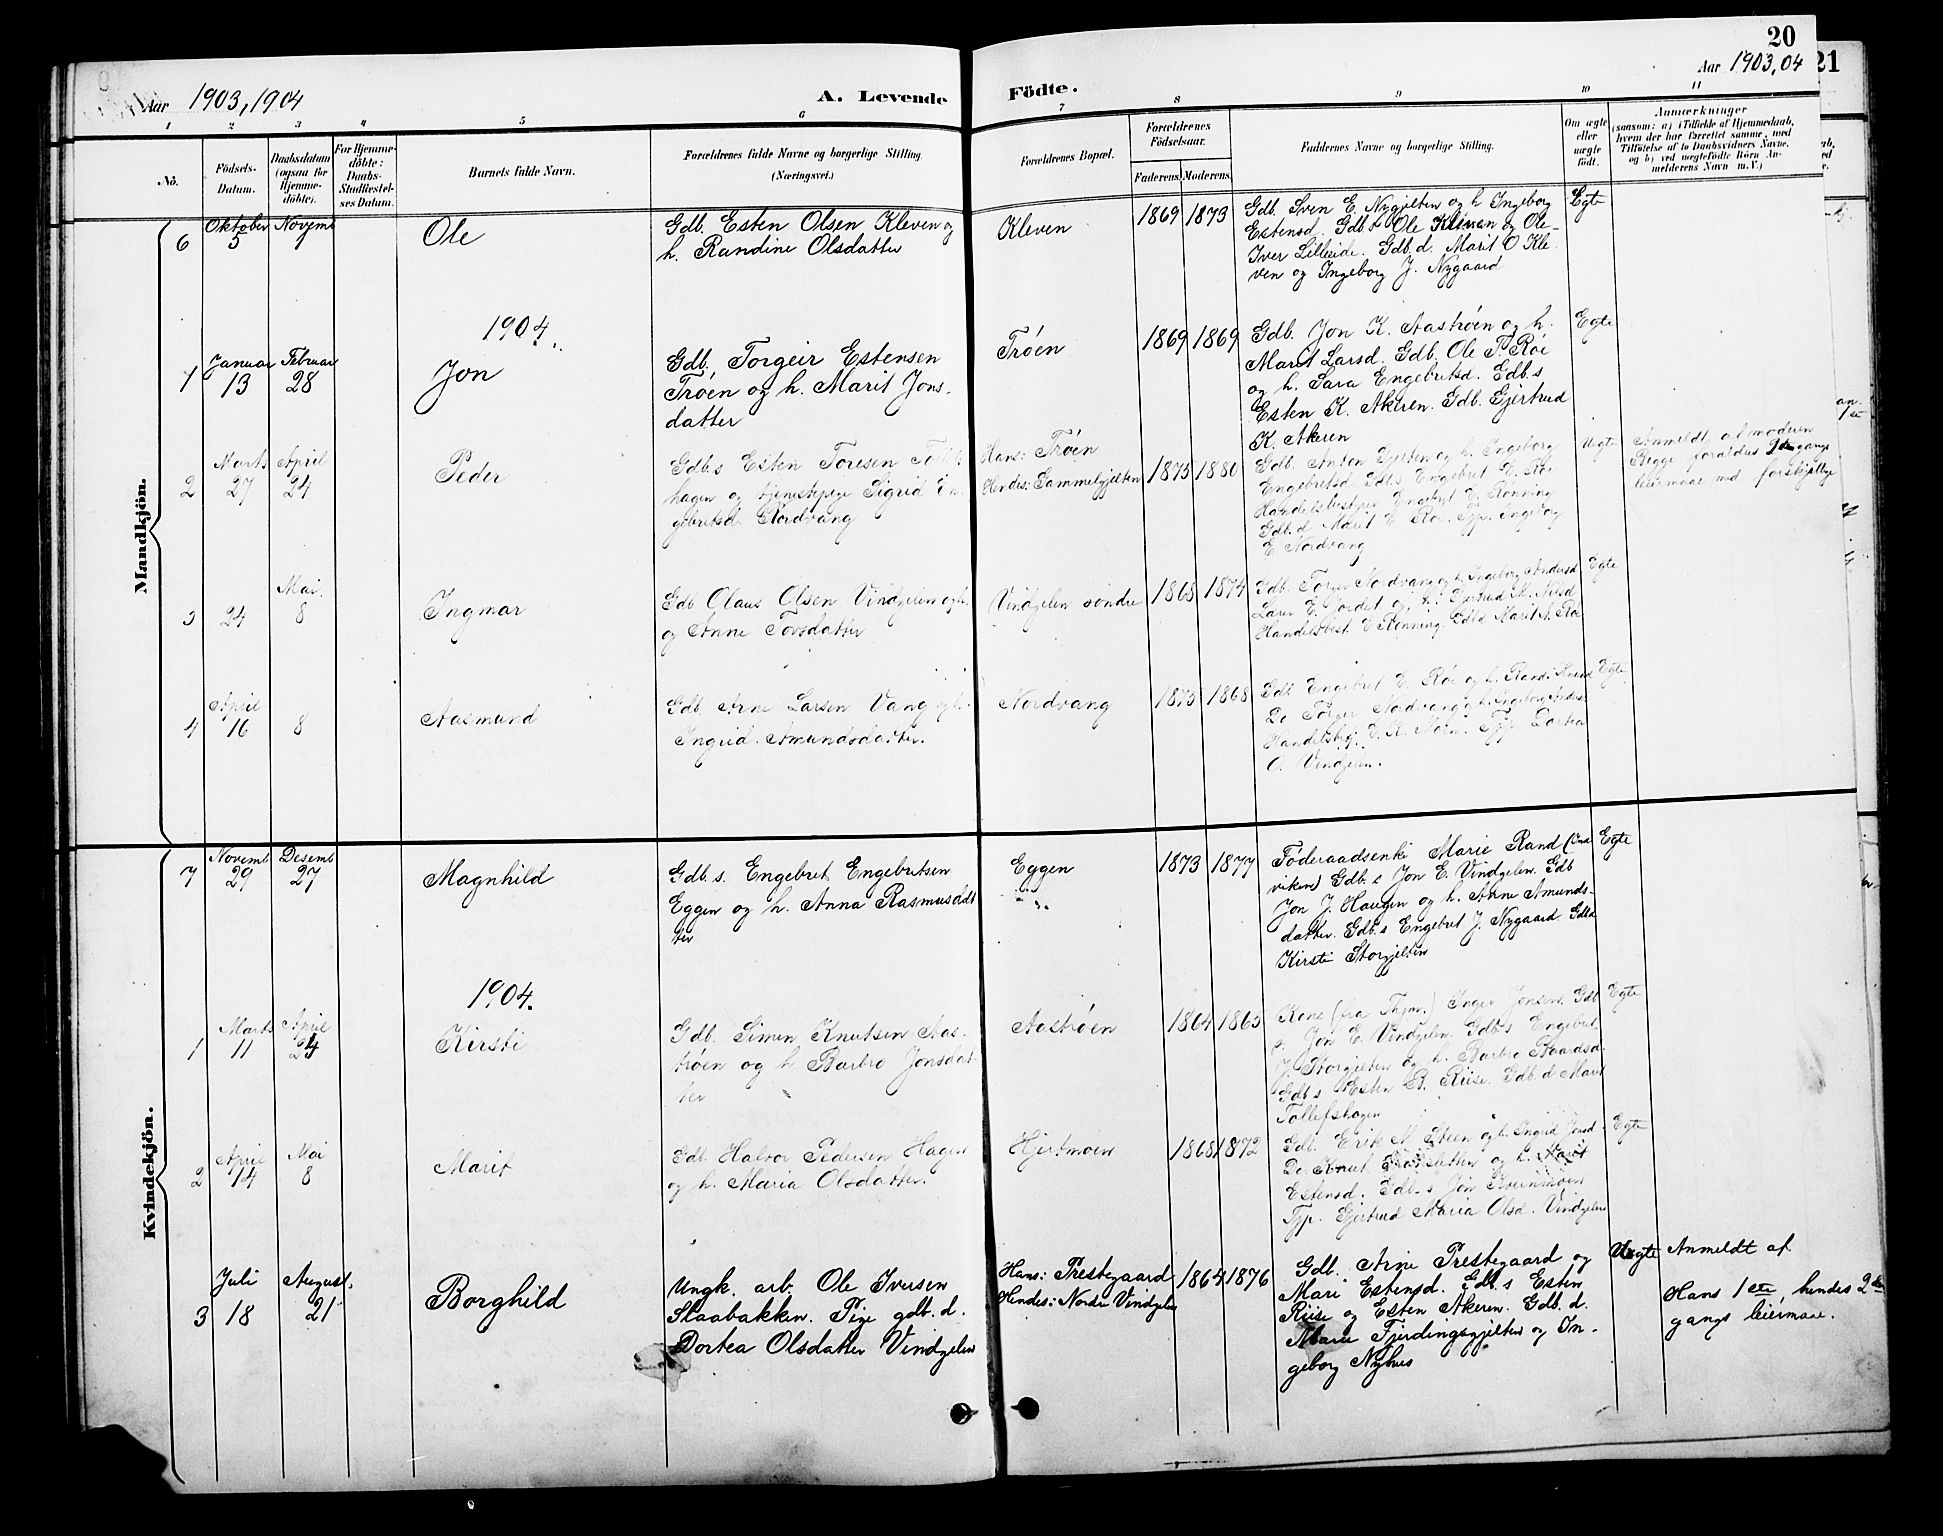 20
21
Aar 1903, 1904
A. Levende
Födte.
Aar 1903, 04
1 2 3 4 5 6 7 8 9 10 11
No.
Födsels-
Datum.
Daabsdatum
(ogsaa for
Hjemme-
döbte).
For Hjemme-
döbte:
Daabs-
Stadfæstel-
ses Datum.
Barnets fulde Navn.
Forældrenes fulde Navne og borgerlige Stilling.
(Næringsvei.)
Forældrenes Bopæl.
Forældrenes
Födselsaar.
Faderens. Moderens.
Faddernes Navne og borgerlige Stilling.
Om ægte
eller
uægte
födt.
Anmærkninger
(saasom: a) i Tilfælde af Hjemmedaab,
hvem der har forrettet samme, med
Tilföielse af to Daabsvidners Navne,
og b) ved uægtefödte Börn An-
melderens Navn m. V.)
Mandkjön.
6
Oktober
5
Novemb
1
Ole
Gdb. Esten Olsen Kleven og
h. Randine Olsdatter
Kleven
1869 1873
Gdb. Sven E. Nygjelten og h Ingeborg
Estensd. Gdb s Ole Kleven og Ole-
Iver Lilleeide. Gdb. d. Marit O Kle-
ven og Ingeborg J. Nygaard
Egte
1904.
1
Januar
13
Februar
28
Jon
Gdb. Torgeir Estensen
Tröen og h. Marit Jons-
datter
Tröen
1869 1869
Gdb. Jon K. Aaströen og h.
Marit Larsd. Gdb. Ole P. Röe
og h. Sara Engebretsd. Gdb.s
Esten K. Akeren. Gdb. Gjertrud
K. Akeren
Egte
2
Marts
27
April
24
Peder
Gdb.s Esten Toresen
hagen og tjenestepige Sigrid En-
gebretsd. Nordvang
Hans: Tröen
Hendes: Sammelgjelten
1875 1880
Gdb. Anton Gjerten og h. Ingeborg
Engebretsd. Gdb.s Engebret E. Röe
Handelsbestyrer Engebret E. Rönning
Gdb. d Marit E. Röe. Tjp. Ingeborg
E Nordvang
Uegte
Anmeldt af moderen
Begge forældres 2den gangs
leiermaal med forskjellige
3
24
Mai.
8
Ingmar
Gdb Olaus Olsen Vindgelen og h.
og Anne Tovsdatter
Vindgelen söndre
1868 1874
Gdb. Torger Nordvang og h. Ingeborg Andersd
Lars E. Jordet og h. Gjertrud M. Nilsd
Handelsbest. E. Rönning. Gdb d Marit A. Röe
Egte
4
April
16
8
Aasmund
Gdb. Arne Larsen Vang og h.
Ingrid Amundsdatter.
Nordvang
1875 1868
Gdb. Engebret E. Röe og h. Randi Knutsd
Do Torger Nordvang og h. Ingeborg Anders-
Handelsbetj. E. R. Moen. Tjp. Dortea
O. Vindgelen.
Egte
Kvindekjön.
7
Novemb
29
Desemb
27
Magnhild
Gdb. s. Engebret Engebretsen
Eggen og h. Anna Rasmusdat
ter
Eggen
" "
1873 1877
Föderaadsenke Marie Rand (Ind
viken) Gdb. s Jon E. Vindgelen. Gdb
Jon J. Haugen og h. Anne Amunds-
datter. Gdb. s Engebret J. Nygaard Gdb d
Kirsti Storgjelten
Egte
1904.
1
Marts
11
April
24
Kirsti
Gdb. Simen Knutsen Aas-
tröen og h Barbro Jonsdat-
ter
Aaströen
1864 1865
Kone (fra Thjm.) Inger Jonsen. Gdb
s. Jon E. Vindgelen. Gdb.s Engebret
J. Storgjelten og h. Barbro Staardsd.
Gdb s Esten B. Riise. Gdb. d Marit
Tollefshagen
Egte
2
April
14
Mai
8
Marit
Gdb. Halvor Pedersen Hagen
og h. Maria Olsdatter.
Hjertmoen
1868 1872
Gdb. Erik M. Steen og h. Ingrid Jonsd
Do. Knut og h. Marit
Estensd. Gdb. s Jon Kvernmoen
Tjp. Gjertrud Maria Olsd. Vindgelen
Egte
3
Juli
18
August.
21
Borghild
Ungk. arb. Ole Iversen
Slaabakken. Pige gdb. d.
Dortea Olsdatter Vindgelen
Hans: Prestegaard
Hendes: Nordre Vindgelen
1864 1876
Gdb. Arne Prestegaard og
Mari Estensd. Gdb. s Esten
Riise og Esten Akeren. Gdb. d.
Marie Fjerdingsgjelten og In-
geborg Nyhus
Uegte
Anmeldt af.
Hans 1ste, hendes 2den
gangs leiermaal.